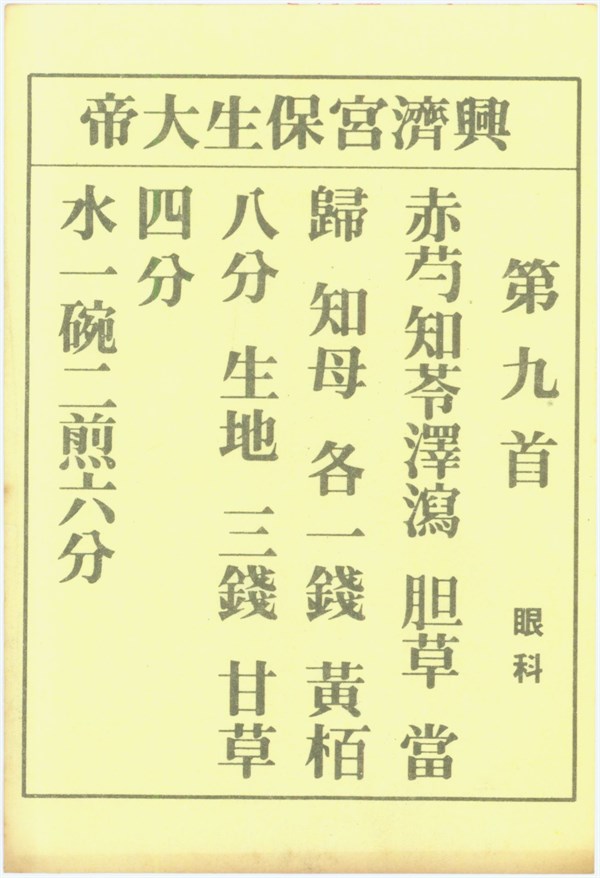 興濟宮保生大帝
第九首 眼科
赤芍知苓澤瀉 胆草 當
歸 知母 各一錢 黃栢
八分 生地 三錢 甘草
四分
水一碗二煎六分